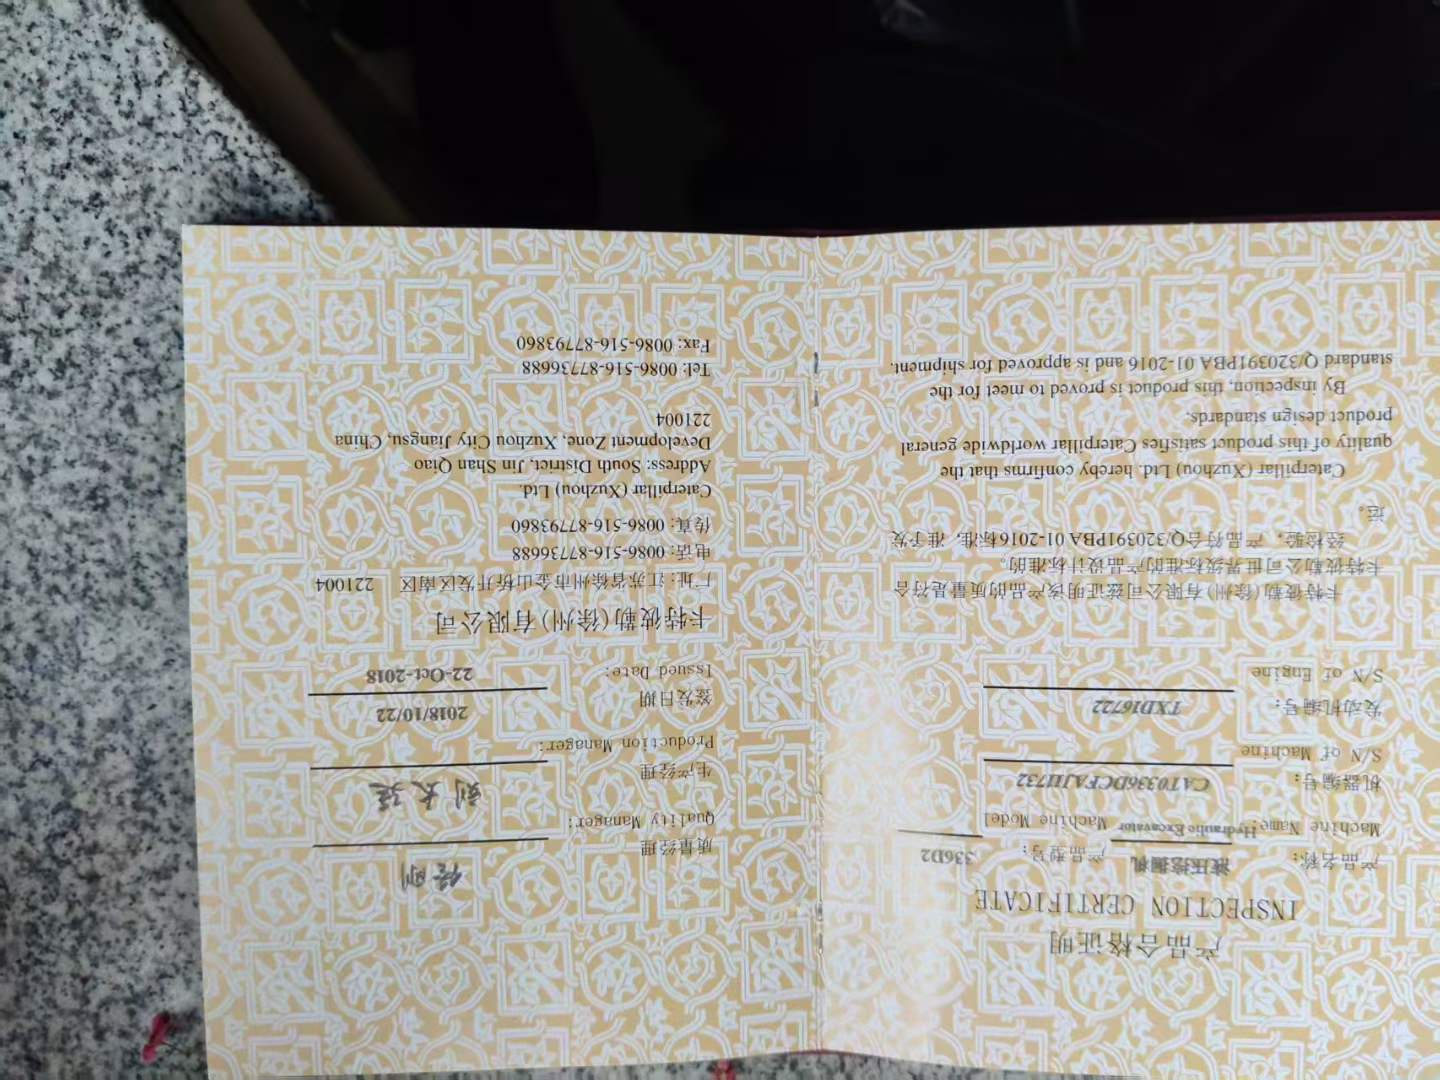 产品合格证明
INSPECTION CERTIFICATE
产品名称: 液压挖掘机 产品型号: 336D2
Machine Name: Hydraulic Excavator Machine Model
机器编号: CAT0336DCFAJ11732
S/N of Machine
发动机编号: TXD16722
S/N of Engine
卡特彼勒(徐州)有限公司兹证明该产品的质量是符合
卡特彼勒公司世界级标准的产品设计标准的。
经检验，产品符合Q/320391PBA 01-2016标准，准予发
运。
Caterpillar (Xuzhou) Ltd. hereby confirms that the
quality of this product satisfies Caterpillar worldwide general
product design standards.
By inspection, this product is proved to meet for the
standard Q/320391PBA 01-2016 and is approved for shipment.
质量经理
Quality Manager:
生产经理
Production Manager:
签发日期 2018/10/22
Issued Date: 22-Oct-2018
卡特彼勒(徐州)有限公司
厂址: 江苏省徐州市金山桥开发区南区 221004
电话: 0086-516-87736688
传真: 0086-516-87793860
Caterpillar (Xuzhou) Ltd.
Address: South District, Jin Shan Qiao
Development Zone, Xuzhou City Jiangsu, China
221004
Tel: 0086-516-87736688
Fax: 0086-516-87793860